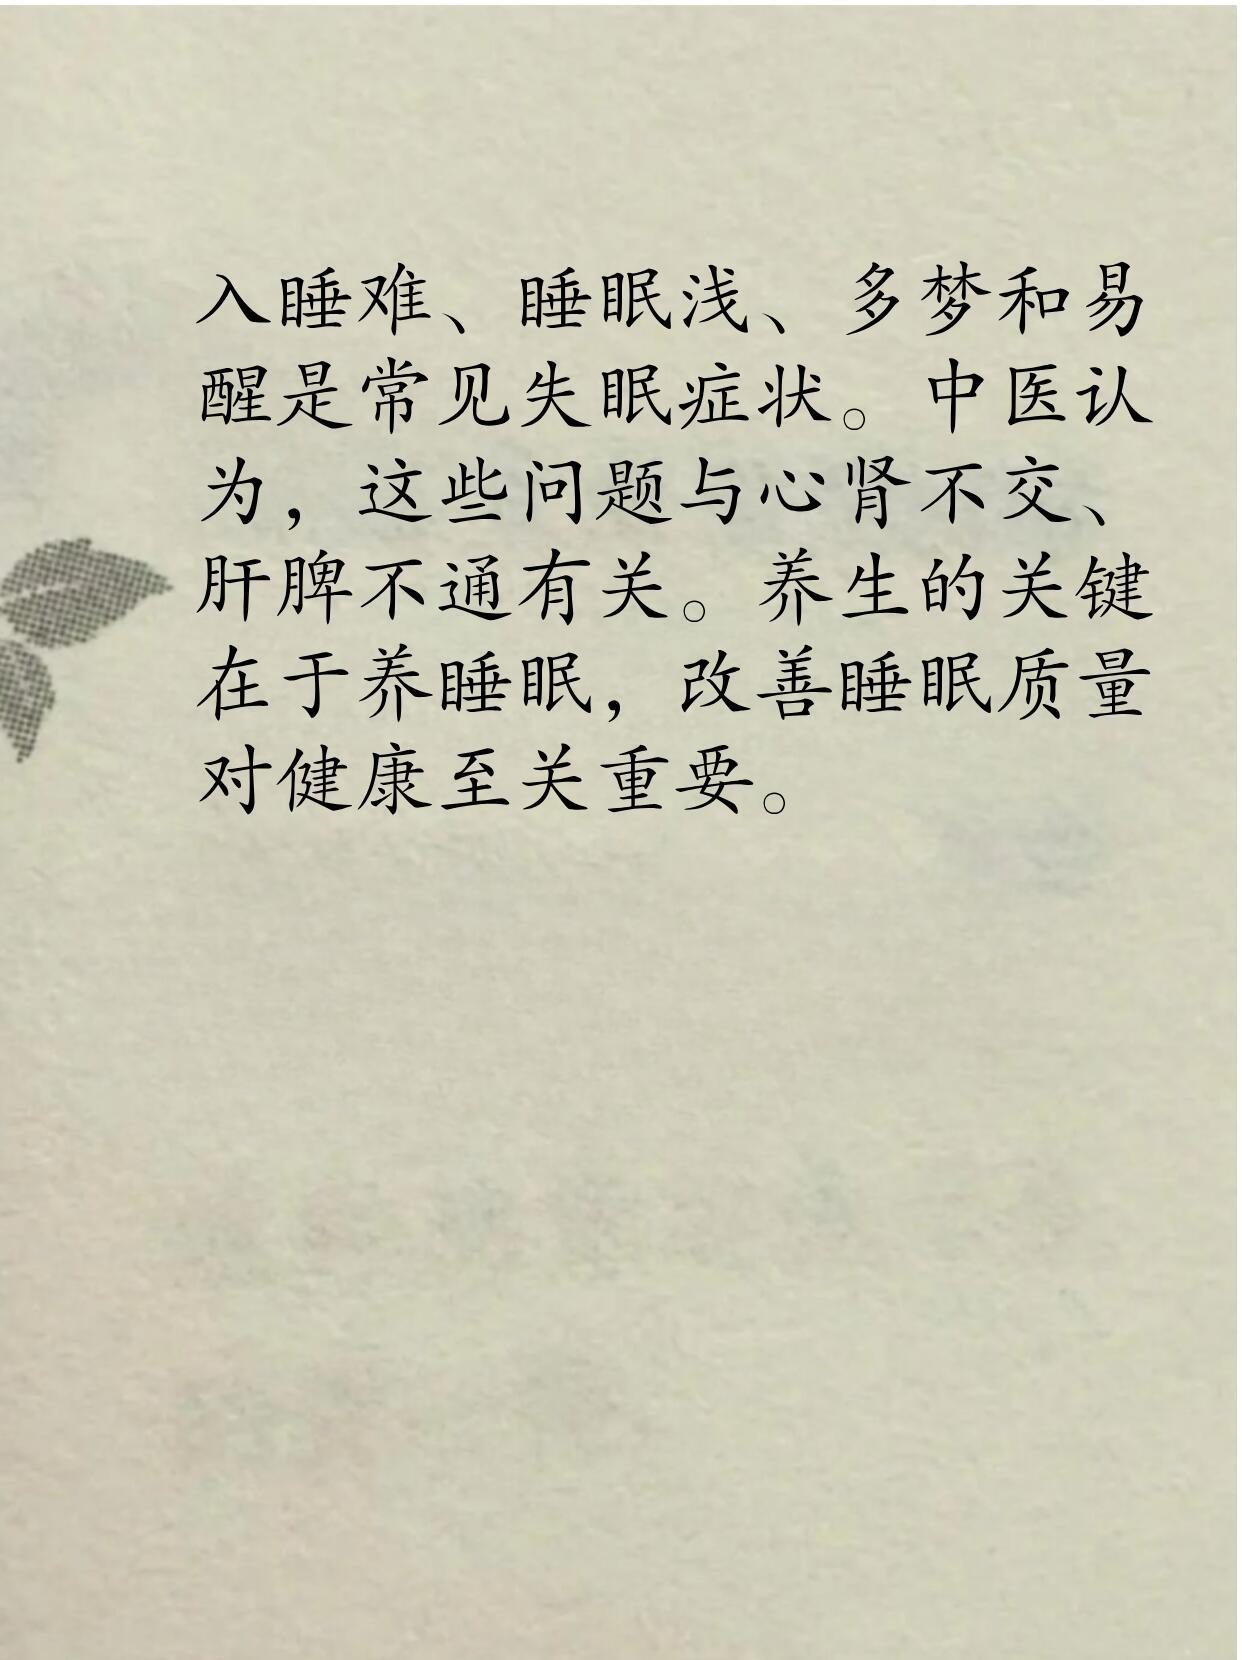 入睡难、睡眠浅、多梦和易
醒是常见失眠症状。中医认
为，这些问题与心肾不交、
肝脾不通有关。养生的关键
在于养睡眠，改善睡眠质量
对健康至关重要。